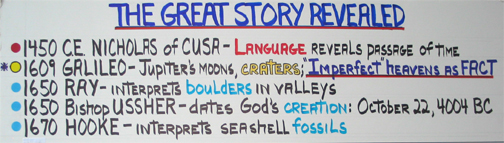 THE GREAT STORY REVEALED
1450 C.E. NICHOLAS of CUSA - LANGUAGE REVEALS PASSAGE OF TIME
* 1609 GALILEO - JUPITER'S MOONS, CRATERS; "IMPERFECT" HEAVENS AS FACT
1650 RAY - INTERPRETS BOULDERS IN VALLEYS
1650 BISHOP USSHER - DATES GOD'S CREATION: OCTOBER 22, 4004 BC
1670 HOOKE - INTERPRETS SEASHELL FOSSILS